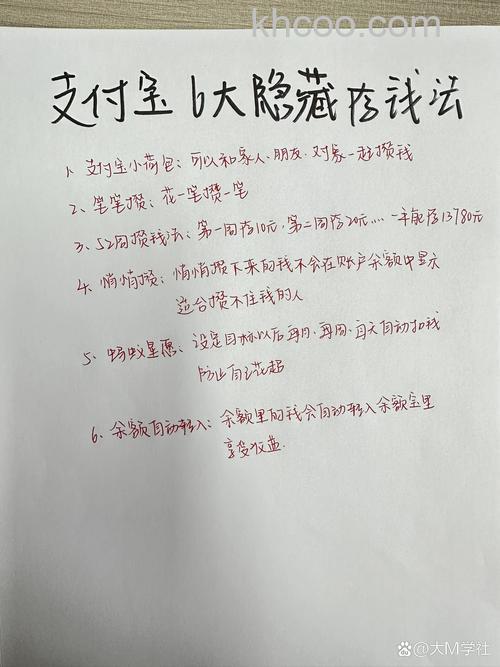 khcoo.com
支付宝6大隐藏存钱法
1、支付宝小荷包：可以和家人、朋友、对象一起攒钱
2、笔笔攒：花一笔攒一笔
3、52周攒钱法：第一周存10元，第二周存20元…… 一年能存13780元
4、悄悄攒：悄悄攒下来的钱不会在账户余额中显示
适合攒不住钱的人
5、蚂蚁星愿：设定目标以后每月、每周、每天自动扣钱
防止自己花超
6、余额自动转入：余额里的钱会自动转入余额宝里
享受收益.
大M学社